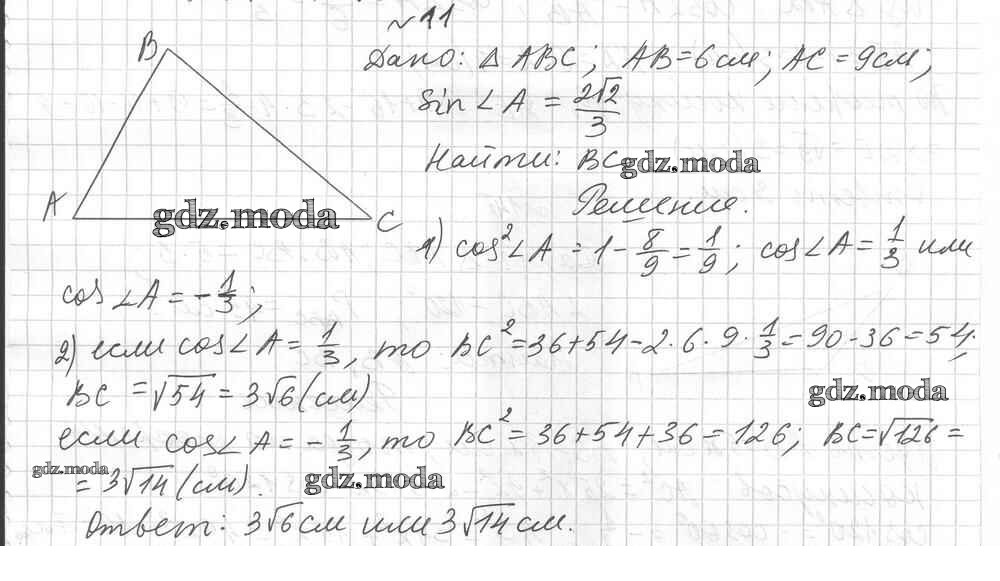 №11
B
Дано: △ ABC; AB=6см; AC=9см;
sin∠A = 2√2/3
Найти: BC gdz.moda
A gdz.moda C
Решение.
1) cos²∠A = 1 - 8/9 = 1/9; cos∠A = 1/3 или
cos∠A = - 1/3;
2) если cos∠A = 1/3, то BC² = 36+54-2·6·9·1/3 = 90-36 = 54;
BC = √54 = 3√6 (см)
gdz.moda
если cos∠A = - 1/3, то BC² = 36+54+36 = 126; BC=√126 =
gdz.moda = 3√14 (см). gdz.moda
Ответ: 3√6 см или 3√14 см.